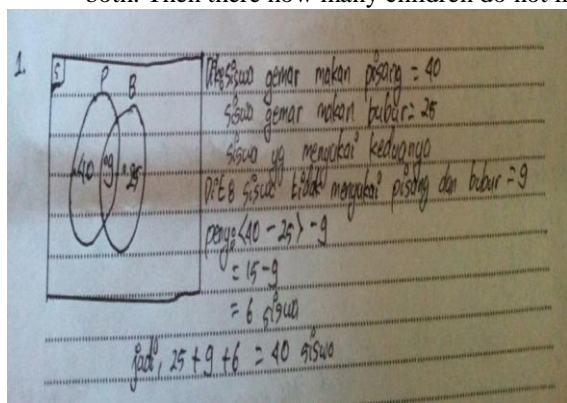 both. Then there how many children do not li
1.
S
P B
40 9 25
Dit: siswa gemar makan pisang = 40
siswa gemar makan bubur = 25
siswa yg menyukai keduanya
Dit: siswa tidak menyukai pisang dan bubur = 9
peny: (40 - 25) - 9
= 15 - 9
= 6 siswa
jadi, 25 + 9 + 6 = 40 siswa